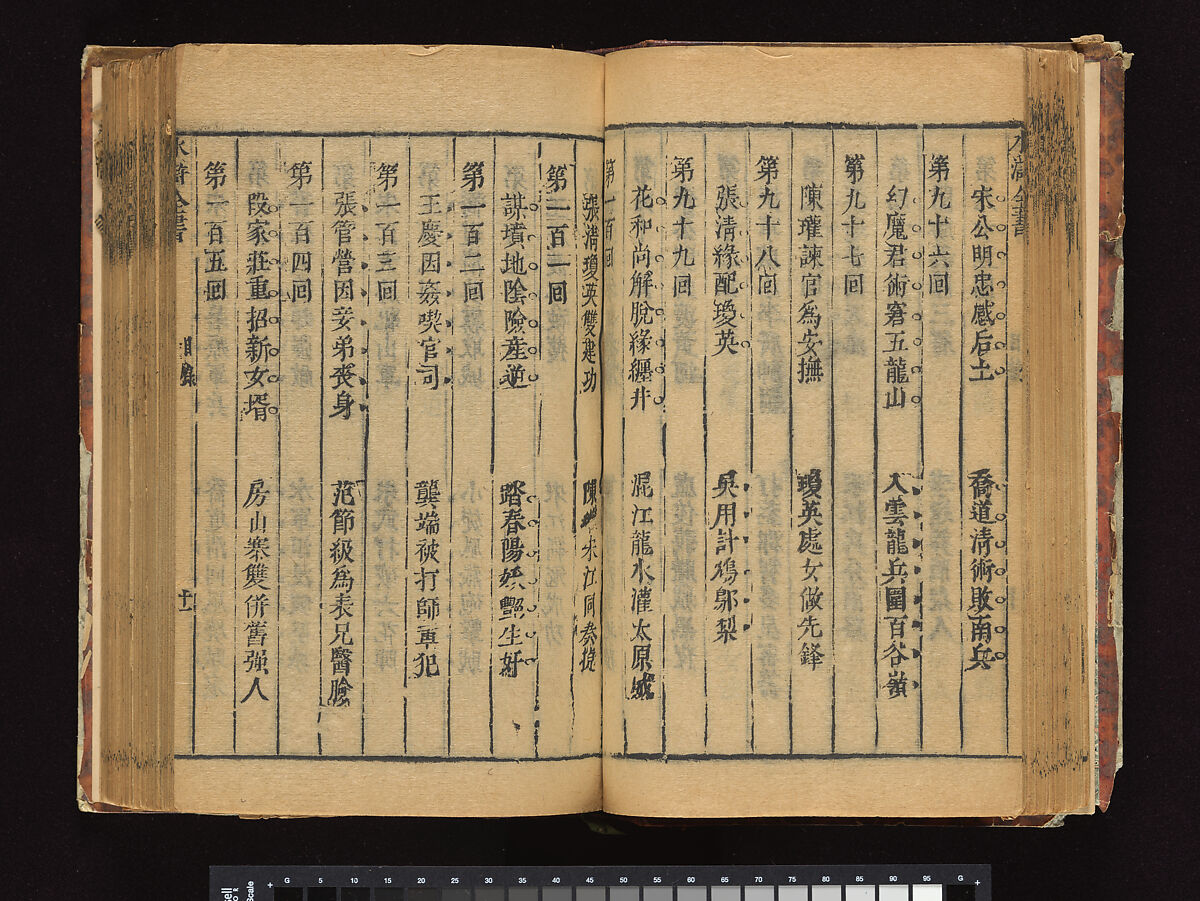 宋公明忠感后土　喬道清術敗南兵
第九十六回
幻魔君術窘五龍山　入雲龍兵圍百谷嶺
第九十七回
陳瓘諫官爲安撫　瓊英處女做先鋒
第九十八回
張清緣配瓊英　吳用計鴆鄔梨
第九十九回
花和尚解脫緣纏井　混江龍水灌太原城
第一百回
張清瓊英雙建功　陳 宋江同奏捷
第一百一回
謀墳地陰險產逆　踏春陽妖艷生奸
第一百二回
王慶因姦喫官司　龔端被打師軍犯
第一百三回
張管營因妾弟喪身　范節級爲表兄醫臉
第一百四回
段家莊重招新女壻　房山寨雙併舊强人
第一百五回
水滸全書
目錄
十一
水滸全書
G 5 10 15 20 25 30 35 40 45 50 55 60 65 70 75 80 85 90 95 G
Scale